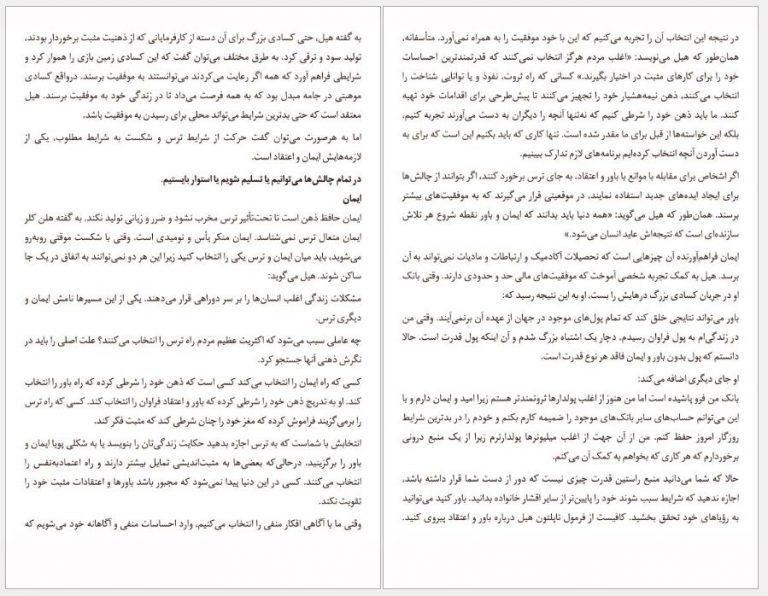 به گفته هیل، حتی کسادی بزرگ برای آن دسته از کارفرمایانی که از ذهنیت مثبت برخوردار بودند،
تولید سود و ترقی کرد. به طرق مختلف می‌توان گفت که این کسادی زمین بازی را هموار کرد و
شرایطی فراهم آورد که همه اگر رعایت می‌کردند می‌توانستند به موفقیت برسند. درواقع کسادی
موهبتی در جامه مبدل بود که به همه فرصت می‌داد تا در زندگی خود به موفقیت برسند. هیل
معتقد است که حتی بدترین شرایط می‌تواند محلی برای رسیدن به موفقیت باشد.
اما به هرصورت می‌توان گفت حرکت از شرایط ترس و شکست به شرایط مطلوب، یکی از
لازمه‌هایش ایمان و اعتقاد است.
در تمام چالش‌ها می‌توانیم یا تسلیم شویم یا استوار بایستیم.
ایمان
ایمان حافظ ذهن است تا تحت‌تأثیر ترس مخرب نشود و ضرر و زیانی تولید نکند. به گفته هلن کلر
ایمان متعال ترس نمی‌شناسد. ایمان منکر یأس و نومیدی است. وقتی با شکست موقتی روبه‌رو
می‌شوید، باید میان ایمان و ترس یکی را انتخاب کنید زیرا این هر دو نمی‌توانند به اتفاق در یک جا
ساکن شوند. هیل می‌گوید:
مشکلات زندگی اغلب انسان‌ها را بر سر دوراهی قرار می‌دهند. یکی از این مسیرها نامش ایمان و
دیگری ترس.
چه عاملی سبب می‌شود که اکثریت عظیم مردم راه ترس را انتخاب می‌کنند؟ علت اصلی را باید در
نگرش ذهنی آنها جستجو کرد.
کسی که راه ایمان را انتخاب می‌کند کسی است که ذهن خود را شرطی کرده که راه باور را انتخاب
کند. او به تدریج ذهن خود را شرطی کرده که باور و اعتقاد فراوان را انتخاب کند. کسی که راه ترس
را برمی‌گزیند فراموش کرده که مغز خود را چنان شرطی کند که مثبت فکر کند.
انتخابش با شماست که به ترس اجازه بدهید حکایت زندگی‌تان را بنویسد یا به شکلی پویا ایمان و
باور را برگزینید. درحالی‌که بعضی‌ها به مثبت‌اندیشی تمایل بیشتر دارند و راه اعتمادبه‌نفس را
انتخاب می‌کنند. کسی در این دنیا پیدا نمی‌شود که مجبور باشد باورها و اعتقادات مثبت خود را
تقویت نکند.
وقتی ما با آگاهی افکار منفی را انتخاب می‌کنیم، وارد احساسات منفی و آگاهانه خود می‌شویم که
در نتیجه این انتخاب آن را تجربه می‌کنیم که این با خود موفقیت را به همراه نمی‌آورد. متأسفانه،
همان‌طور که هیل می‌نویسد: «اغلب مردم هرگز انتخاب نمی‌کنند که قدرتمندترین احساسات
خود را برای کارهای مثبت در اختیار بگیرند.» کسانی که راه ثروت، نفوذ و یا توانایی شناخت را
انتخاب می‌کنند، ذهن نیمه‌هشیار خود را تجهیز می‌کنند تا پیش‌طرحی برای اقدامات خود تهیه
کنند. ما باید ذهن خود را شرطی کنیم که نه‌تنها آنچه را دیگران به دست می‌آورند تجربه کنیم،
بلکه این خواسته‌ها از قبل برای ما مقدر شده است. تنها کاری که باید بکنیم این است که برای به
دست آوردن آنچه انتخاب کرده‌ایم برنامه‌های لازم تدارک ببینیم.
اگر اشخاص برای مقابله با موانع با باور و اعتقاد، به جای ترس برخورد کنند، اگر بتوانند از چالش‌ها
برای ایجاد ایده‌های جدید استفاده نمایند، در موقعیتی قرار می‌گیرند که به موفقیت‌های بیشتر
برسند. همان‌طور که هیل می‌گوید: «همه دنیا باید بدانند که ایمان و باور نقطه شروع هر تلاش
سازنده‌ای است که نتیجه‌اش عاید انسان می‌شود.»
ایمان فراهم‌آورنده آن چیزهایی است که تحصیلات آکادمیک و ارتباطات و مادیات نمی‌تواند به آن
برسد. هیل به کمک تجربه شخصی آموخت که موفقیت‌های مالی حد و حدودی دارند. وقتی بانک
او در جریان کسادی بزرگ درهایش را بست، او به این نتیجه رسید که:
باور می‌تواند نتایجی خلق کند که تمام پول‌های موجود در جهان از عهده آن برنمی‌آیند. وقتی من
در زندگی‌ام به پول فراوان رسیدم، دچار یک اشتباه بزرگ شدم و آن اینکه پول قدرت است. حالا
دانستم که پول بدون باور و ایمان فاقد هر نوع قدرت است.
او جای دیگری اضافه می‌کند:
بانک من فرو پاشیده است اما من هنوز از اغلب پولدارها ثروتمندتر هستم زیرا امید و ایمان دارم و با
این می‌توانم حساب‌های سایر بانک‌های موجود را ضمیمه کارم بکنم و خودم را در بدترین شرایط
روزگار امروز حفظ کنم. من از آن جهت از اغلب میلیونرها پولدارترم زیرا از یک منبع درونی
برخوردارم که هر کاری که بخواهم به کمک آن می‌کنم.
حالا که شما می‌دانید منبع راستین قدرت چیزی نیست که دور از دست شما قرار داشته باشد،
اجازه ندهید که شرایط سبب شوند خود را پایین‌تر از سایر اقشار خانواده بدانید. باور کنید می‌توانید
به رؤیاهای خود تحقق بخشید. کافیست از فرمول ناپلئون هیل درباره باور و اعتقاد پیروی کنید.